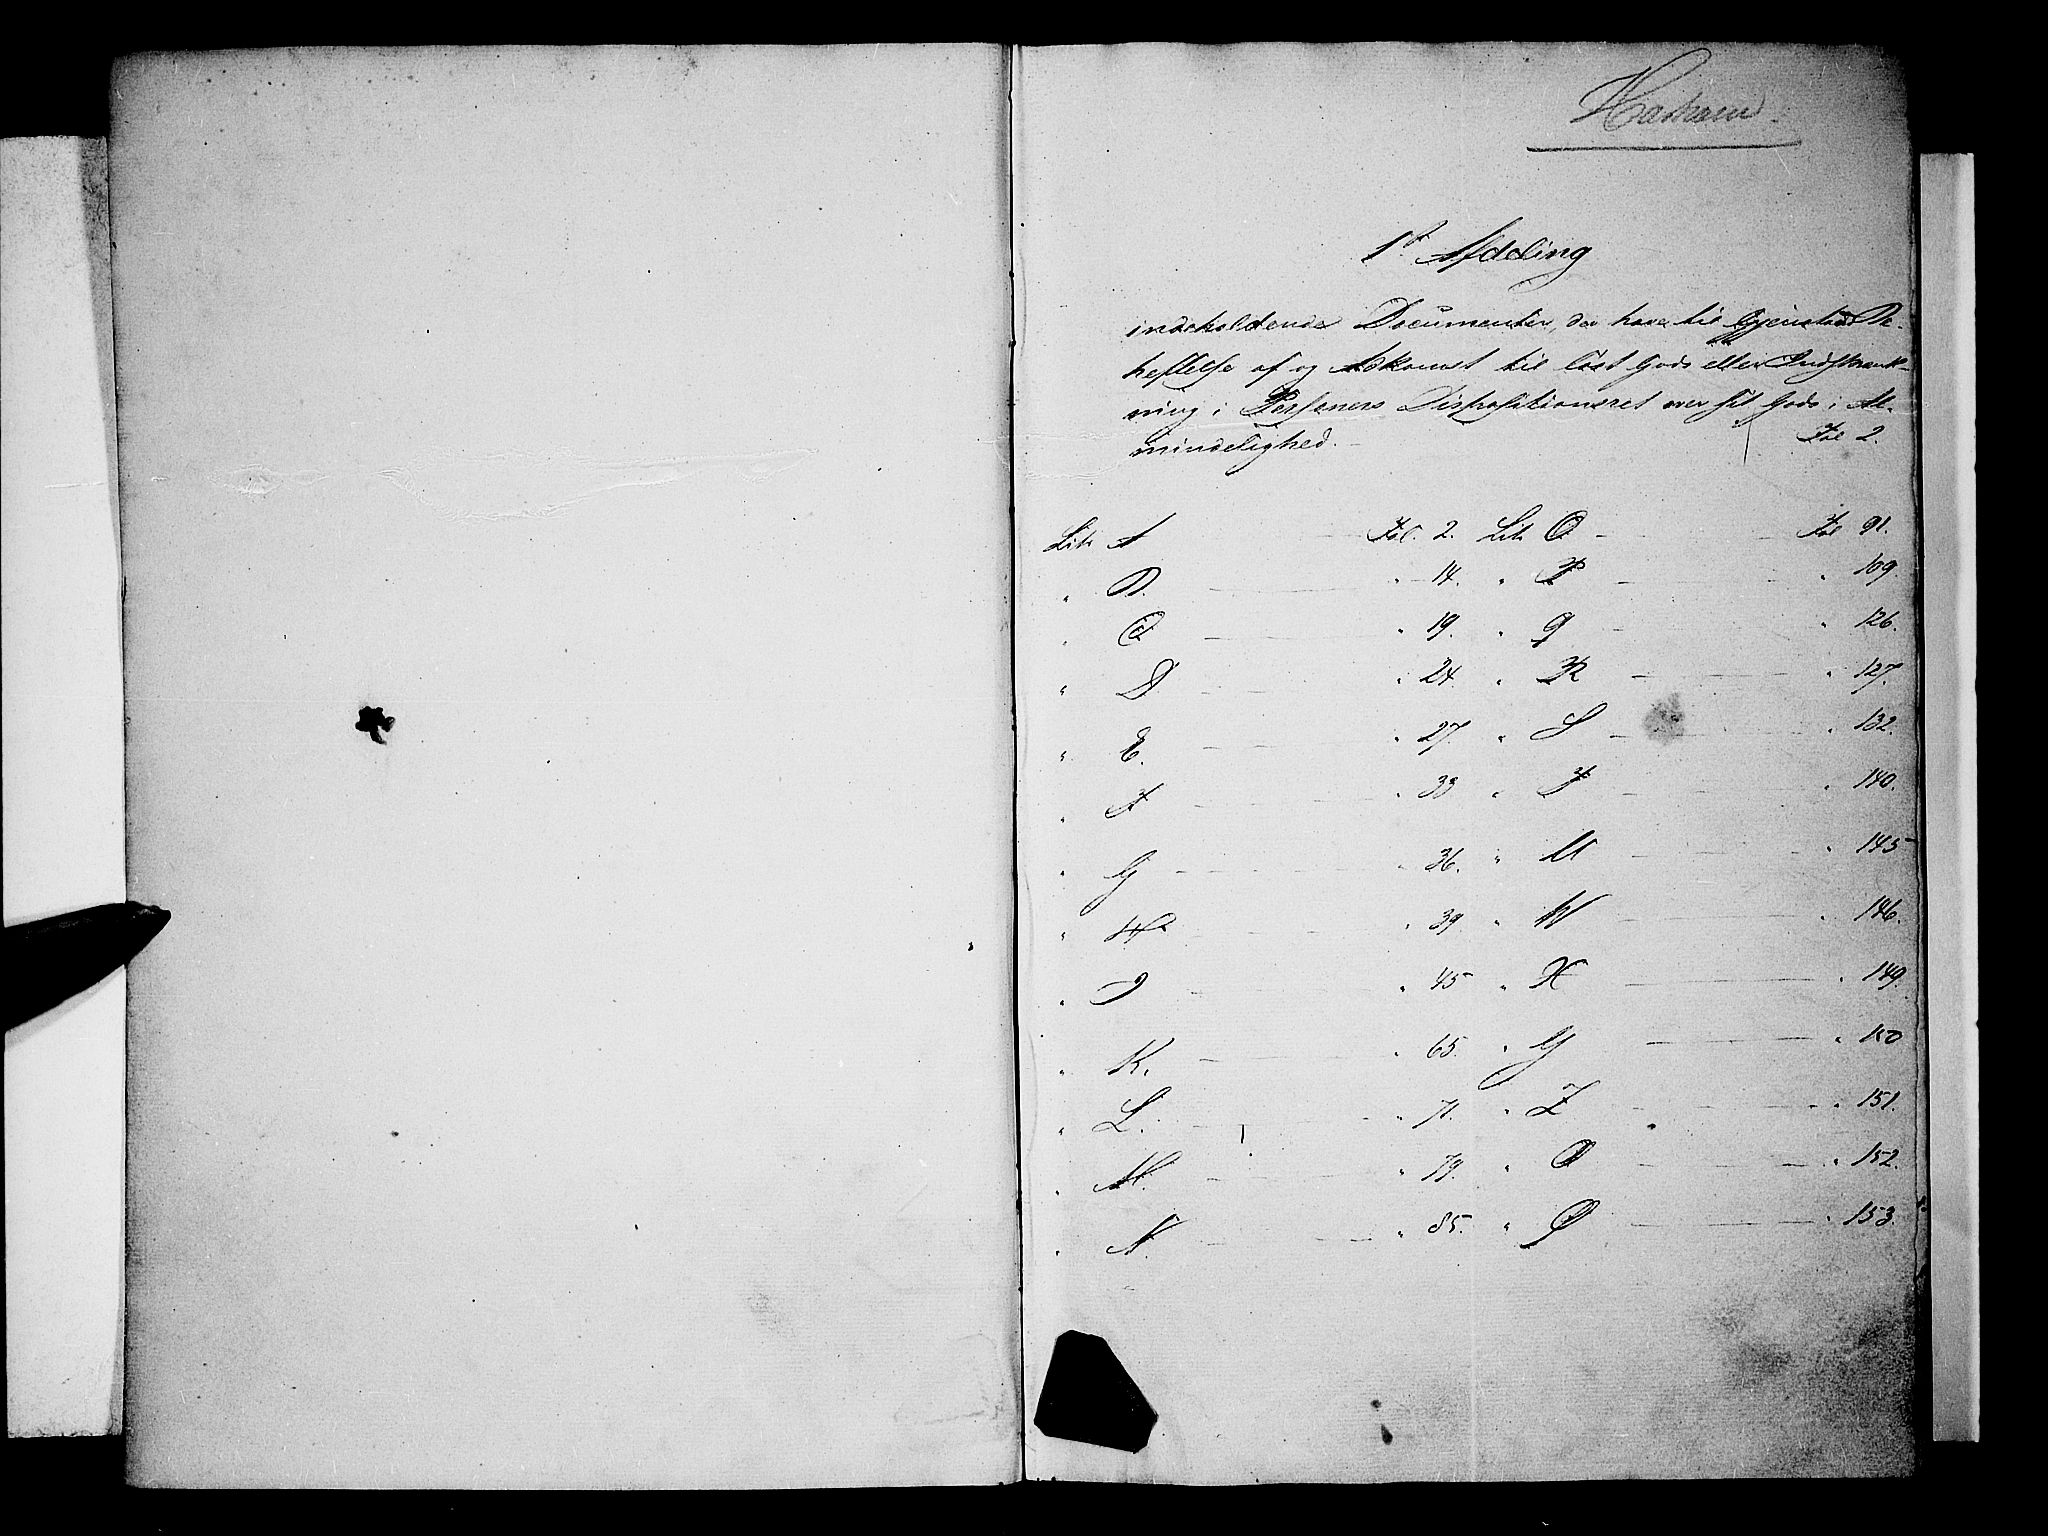 1ste Afdeling
indeholdende Documenter, der have til Gjenstand Be-
heftelse af og Adkomst til löst Gods eller Indskrænk-
ning i Personers Dispositionsret over sit Gods i Al-
mindelighed.— Fol 2.
Litr A Fol. 2. Litr O Fol 91.
" B. " 14. " P " 109.
" C " 19. " Q " 126.
" D " 24. " R " 127.
" E. " 27. " S " 132.
" F " 33 " T " 140.
" G " 36. " U " 145
" H " 39 " W " 146.
" I " 45 " X " 149.
" K. " 65. " Y " 150
" L. " 71. " Z " 151.
" M. " 79. " Æ " 152.
" N. " 85. " Ø " 153.